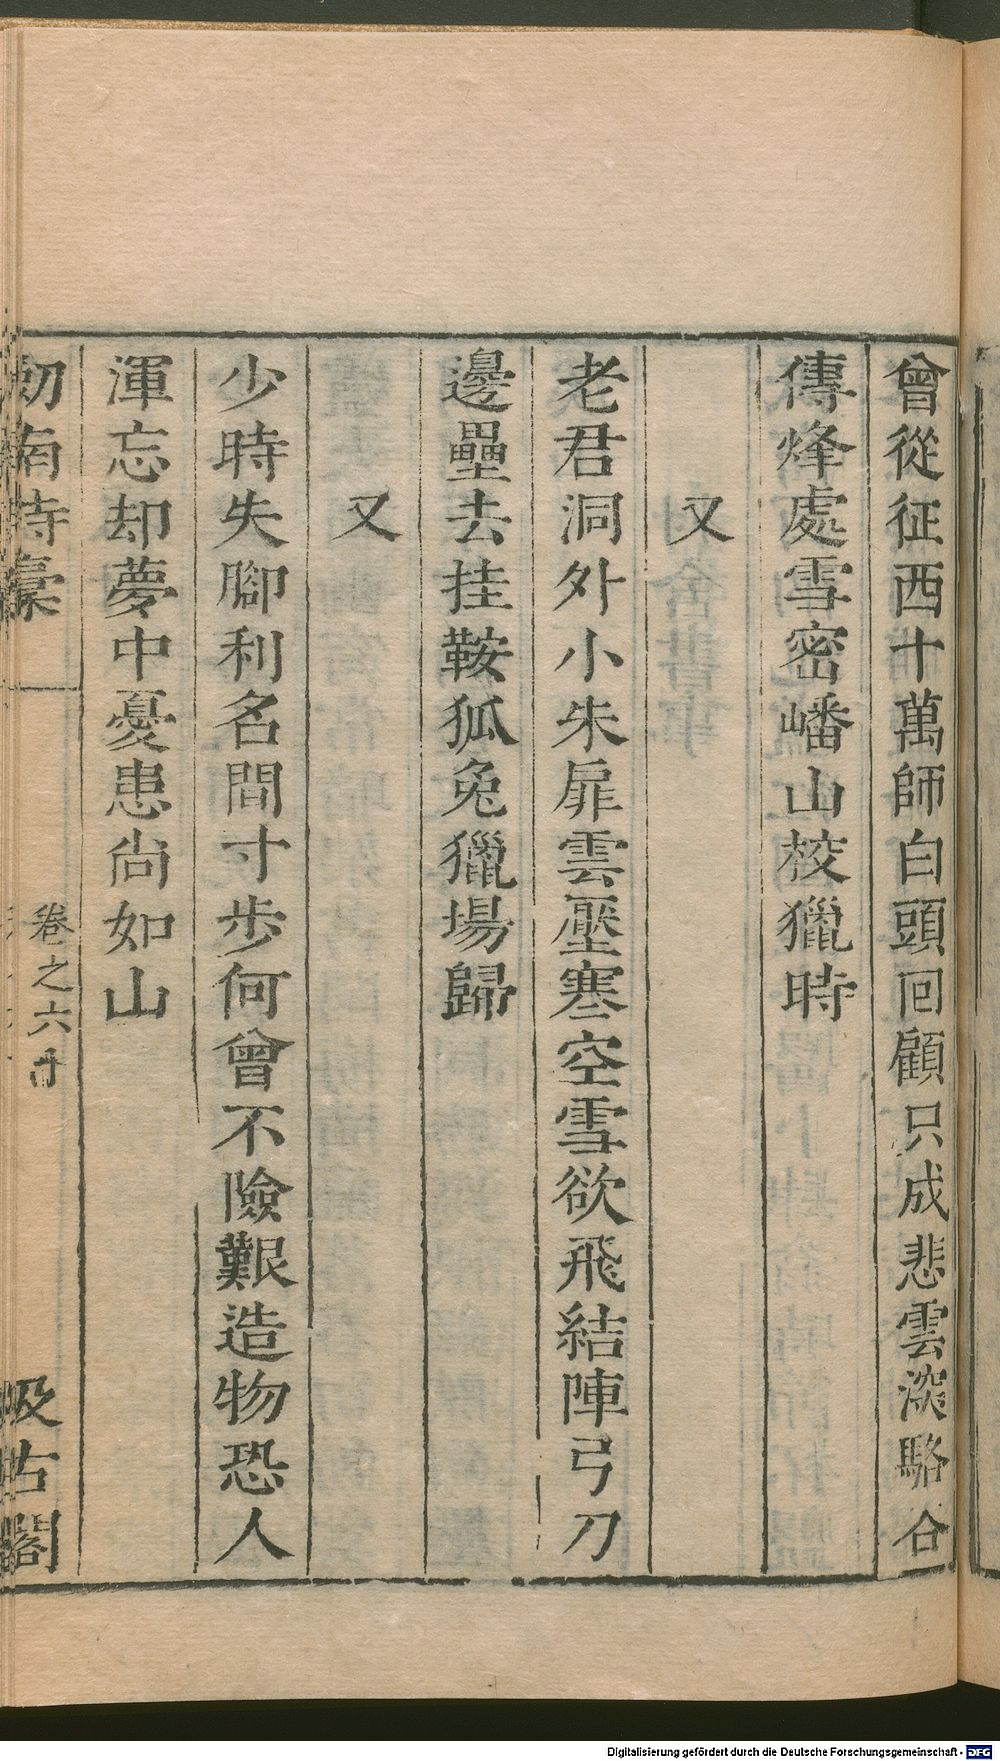 曾從征西十萬師白頭回顧只成悲雲深駱谷
傳烽處雪密嶓山校獵時
又
老君洞外小朱扉雲壓寒空雪欲飛結陣弓刀
邊壘去挂鞍狐兔獵場歸
又
少時失腳利名間寸步何曾不險艱造物恐人
渾忘却夢中憂患尚如山
劒南詩稾
卷之六十
汲古閣
Digitalisierung gefördert durch die Deutsche Forschungsgemeinschaft - DFG